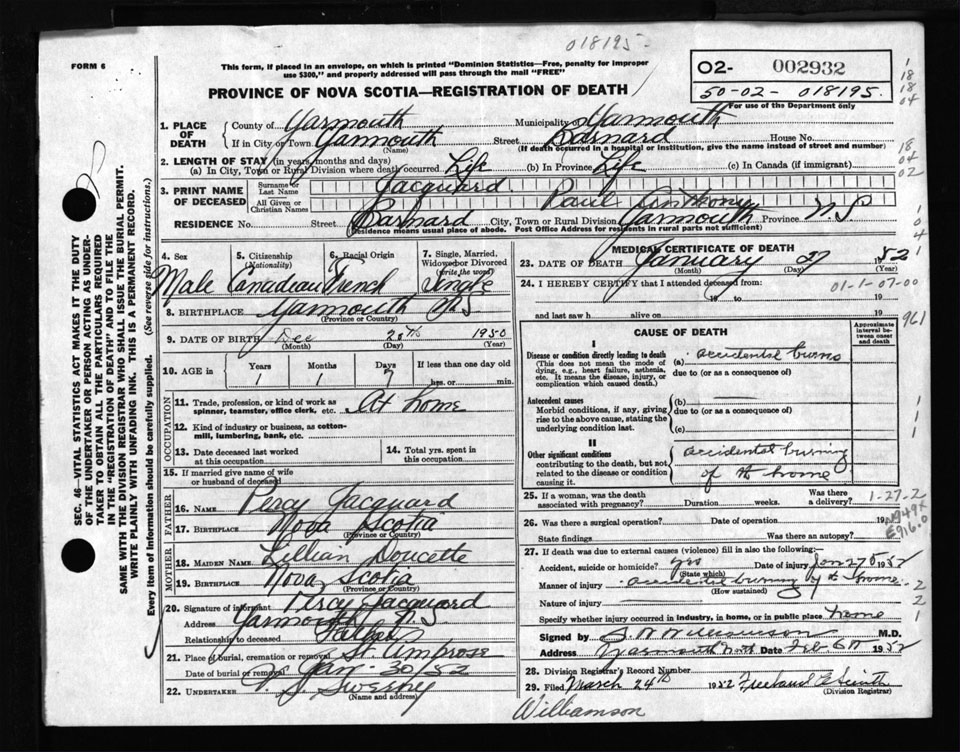 018195
FORM 6
This form, if placed in an envelope, on which is printed "Dominion Statistics—Free, penalty for improper
use $300," and properly addressed will pass through the mail "FREE"
O2- 002932
50-02- 018195.
For use of the Department only
PROVINCE OF NOVA SCOTIA—REGISTRATION OF DEATH
1. PLACE OF DEATH
County of Yarmouth Municipality of Yarmouth
If in City or Town Yarmouth Street Barnard House No.
(Name) (If death occurred in a hospital or institution, give the name instead of street and number)
2. LENGTH OF STAY (in years, months and days)
(a) In City, Town or Rural Division where death occurred Life (b) In Province Life (c) In Canada (if immigrant)
3. PRINT NAME OF DECEASED
Surname or Last Name Jacquard
All Given or Christian Names Paul Anthony
RESIDENCE No. Street Barnard City, Town or Rural Division Yarmouth Province N.S
(Residence means usual place of abode. Post Office Address for residents in rural parts not sufficient)
4. Sex Male
5. Citizenship (Nationality) Canadian
6. Racial Origin French
7. Single, Married, Widowed or Divorced (write the word) Single
8. BIRTHPLACE Yarmouth NS
(Province or Country)
9. DATE OF BIRTH Dec 20th 1950
(Month) (Day) (Year)
10. AGE in Years 1 Months 1 Days 7 If less than one day old hrs. or min.
OCCUPATION
11. Trade, profession, or kind of work as spinner, teamster, office clerk, etc. At home
12. Kind of industry or business, as cotton-mill, lumbering, bank, etc.
13. Date deceased last worked at this occupation
14. Total yrs. spent in this occupation
15. If married give name of wife or husband of deceased
FATHER
16. Name Percy Jacquard
17. Birthplace Nova Scotia
(Province or Country)
MOTHER
18. Maiden Name Lillian Doucette
19. Birthplace Nova Scotia
(Province or Country)
20. Signature of informant Percy Jacquard
Address Yarmouth N.S
Relationship to deceased Father
21. Place of burial, cremation or removal St. Ambrose
Date of burial or removal Jan 30/52
22. UNDERTAKER V. S. Sweeny
(Name and address)
MEDICAL CERTIFICATE OF DEATH
23. DATE OF DEATH January 27 1952
(Month) (Day) (Year)
24. I HEREBY CERTIFY that I attended deceased from:
01-1-07-00
19 to 19
and last saw h alive on 19
961
CAUSE OF DEATH
Approximate interval between onset and death
I
Disease or condition directly leading to death
(This does not mean the mode of dying, e.g., heart failure, asthenia, etc. It means the disease, injury, or complication which caused death.)
(a) accidental burns
due to (or as a consequence of)
Antecedent causes
Morbid conditions, if any, giving rise to the above cause, stating the underlying condition last.
(b)
due to (or as a consequence of)
(c)
II
Other significant conditions
contributing to the death, but not related to the disease or condition causing it.
accidental burning
of the home
25. If a woman, was the death associated with pregnancy? Duration weeks. Was there a delivery?
1-27-2
26. Was there a surgical operation? Date of operation 19
State findings Was there an autopsy?
N949X
E916.0
27. If death was due to external causes (violence) fill in also the following:—
Accident, suicide or homicide? yes Date of injury Jan 27th 1952
(State which)
Manner of injury accidental burning of the home
(How sustained)
Nature of injury
Specify whether injury occurred in industry, in home, or in public place home
Signed by Williamson M.D.
Address Yarmouth North Date Feb. 6th 1952
28. Division Registrar's Record Number
29. Filed March 24th 1952 Freeland E Smith
(Division Registrar)
Williamson
SEC. 46—VITAL STATISTICS ACT MAKES IT THE DUTY
OF THE UNDERTAKER OR PERSON ACTING AS UNDER-
TAKER TO OBTAIN ALL THE PARTICULARS REQUIRED
IN THE "REGISTRATION OF DEATH" AND TO FILE THE
SAME WITH THE DIVISION REGISTRAR WHO SHALL ISSUE THE BURIAL PERMIT.
WRITE PLAINLY WITH UNFADING INK. THIS IS A PERMANENT RECORD.
Every item of Information should be carefully supplied. (See reverse side for instructions.)
1
18
18
04
18
04
02
1
0
4
1
1
1
1
2
2
1